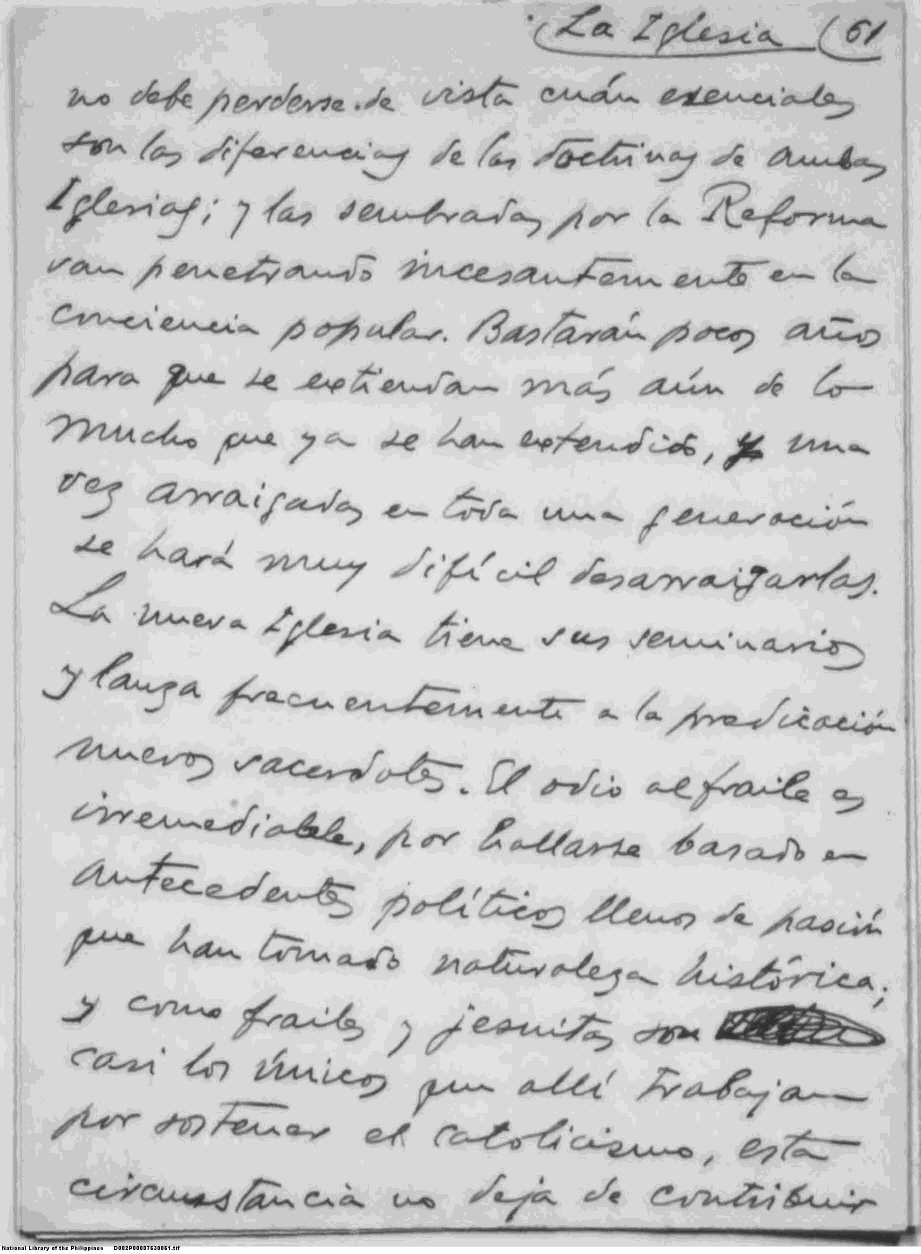 La Iglesia 61
no debe perderse de vista cuán esenciales
son las diferencias de las doctrinas de ambas
Iglesias; y las sembradas por la Reforma
van penetrando incesantemente en la
conciencia popular. Bastarán pocos años
para que se extiendan más aún de lo
mucho que ya se han extendido, y una
vez arraigadas en toda una generación
se hará muy difícil desarraigarlas.
La nueva Iglesia tiene sus seminarios
y lanza frecuentemente a la predicación
nuevos sacerdotes. El odio al fraile es
irremediable, por hallarse basado en
antecedentes políticos llenos de pasión
que han tomado naturaleza histórica;
y como frailes y jesuitas son
casi los únicos que allí trabajan
por sostener el catolicismo, esta
circunstancia no deja de contribuir
National Library of the Philippines D002P00007630061.tif